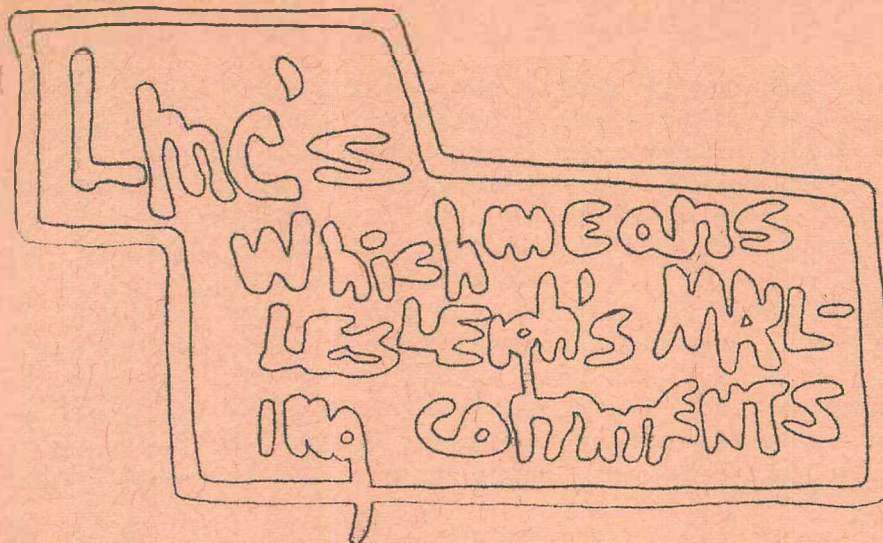 Lmc's
Which mEans
LESLEigh's MAIL-
ing commENTS